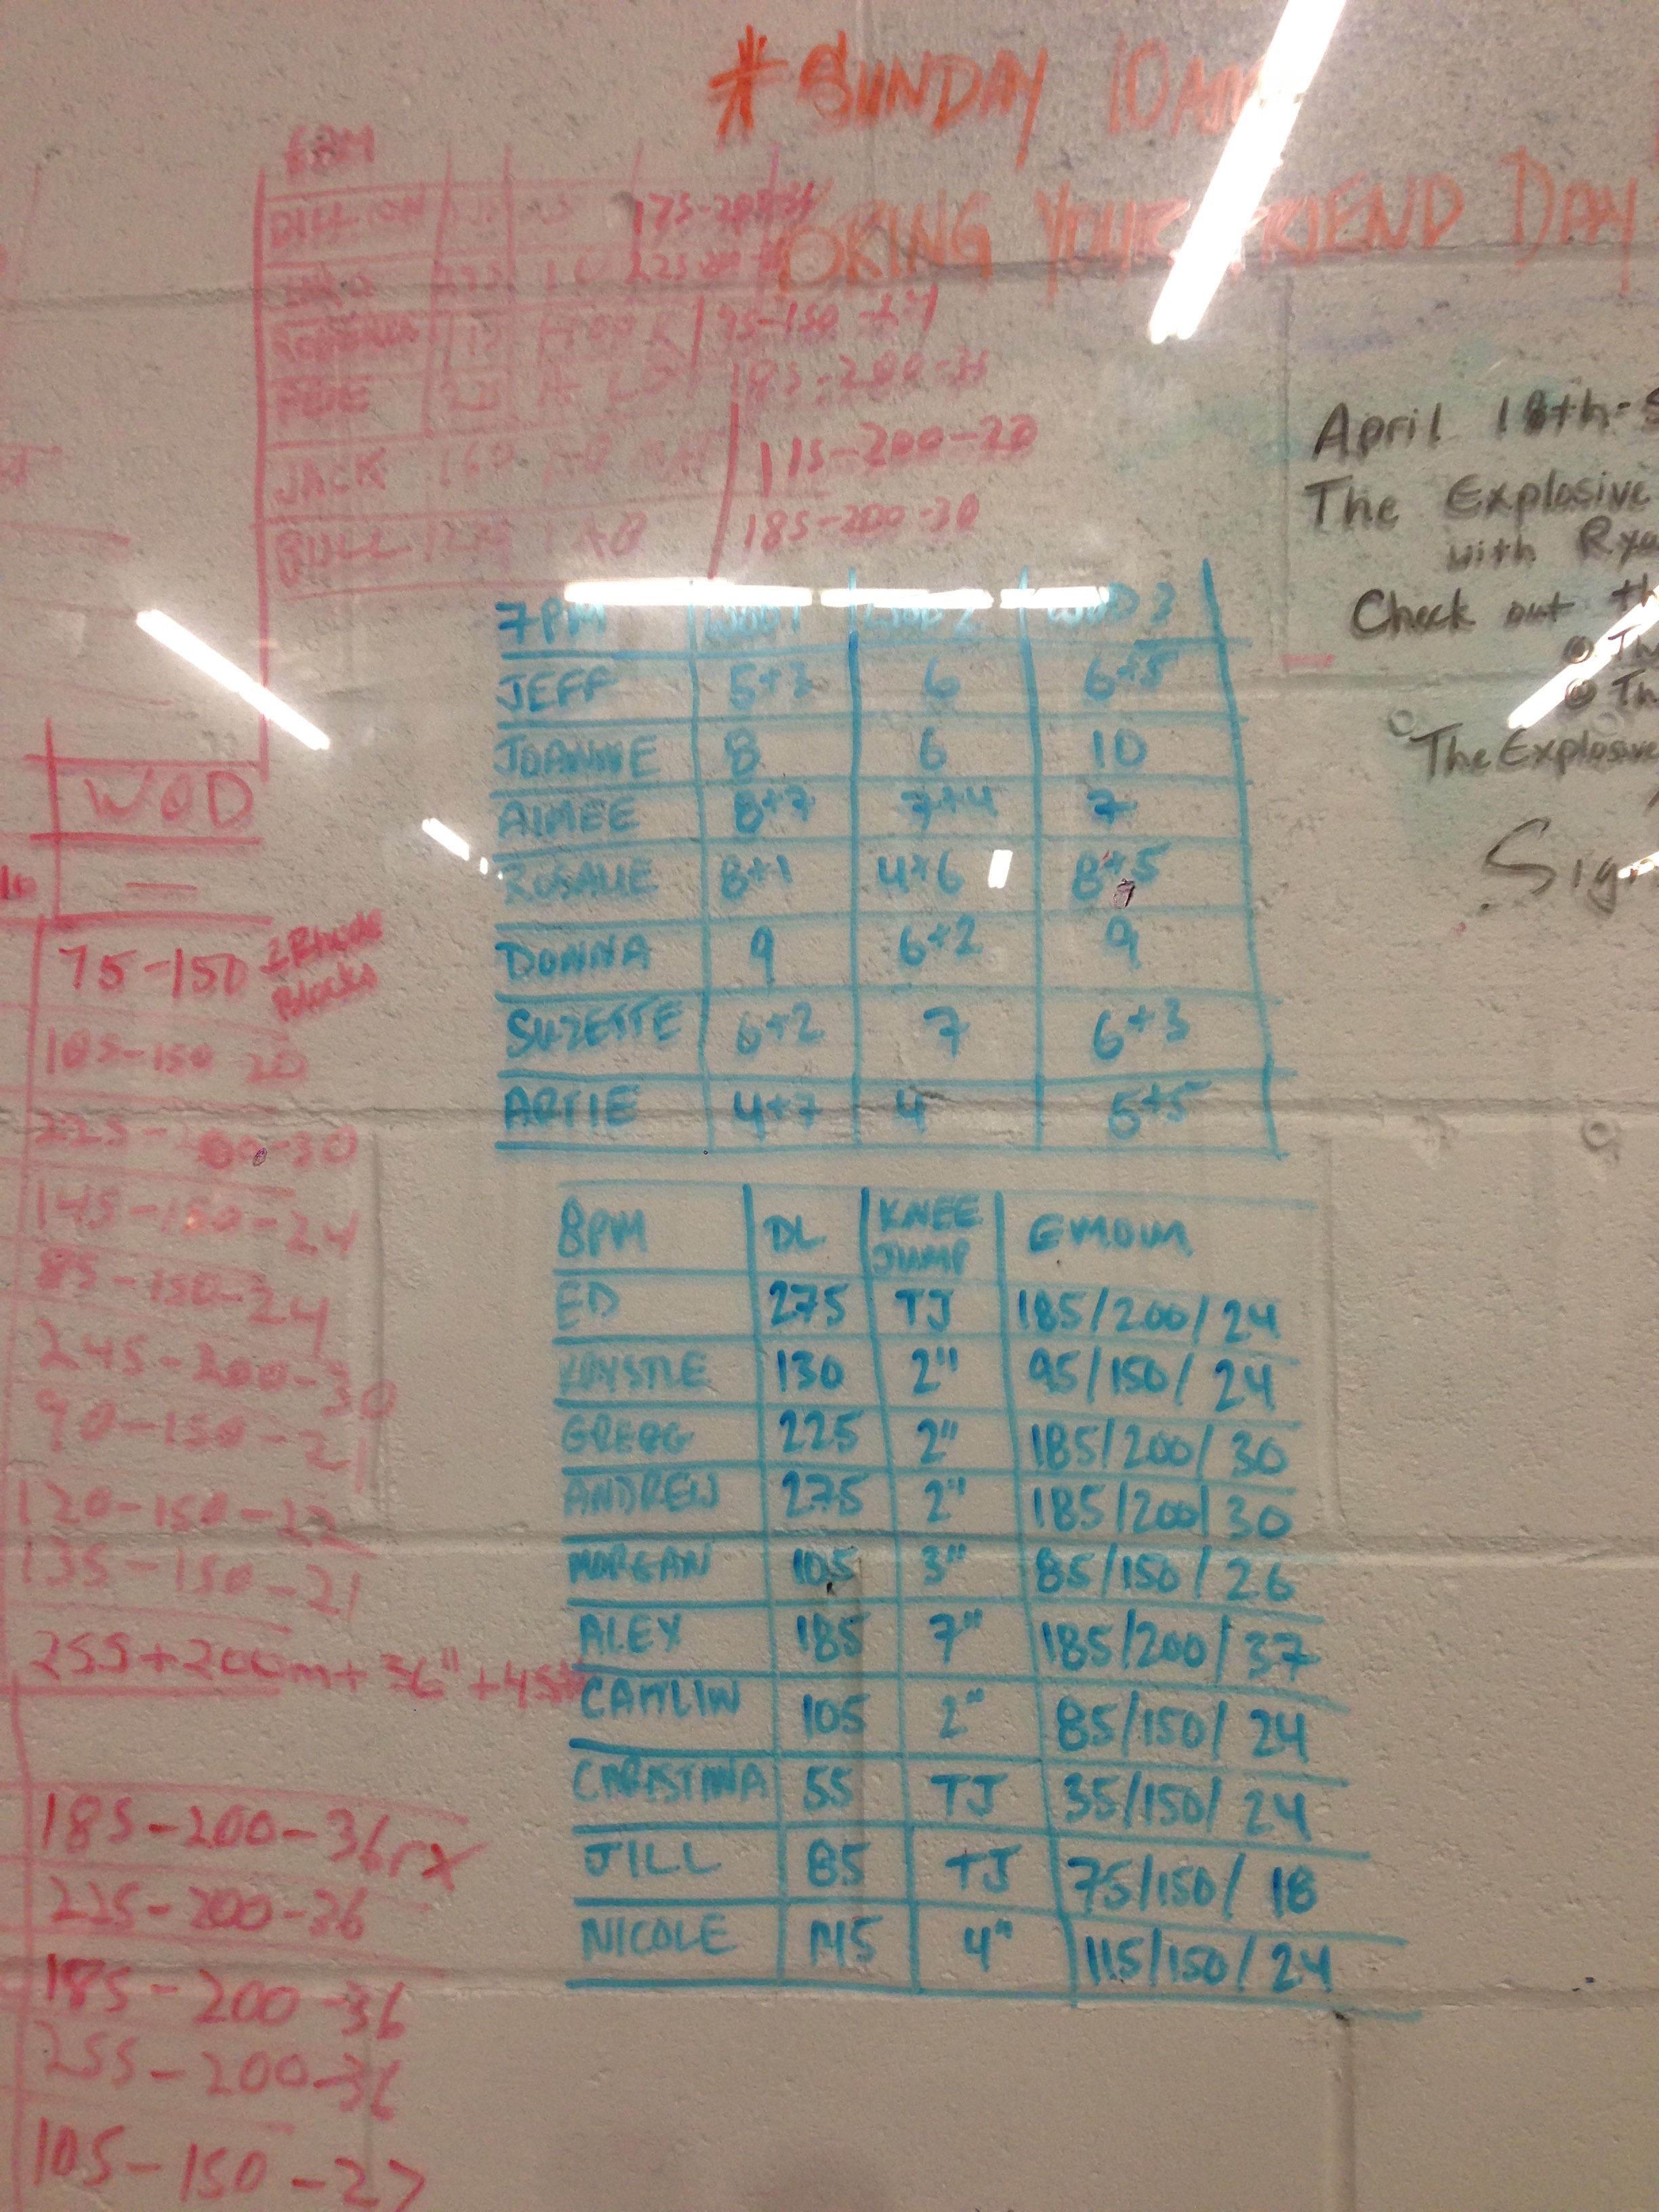 * SUNDAY 10AM
BRING YOUR FRIEND DAY
6PM
175-200
225
95-150-24
185-200-36
JACK 115-200-20
BILL 185-200-30
April 18th-S
The Explosive
with Rya
Check out th
Th
Th
The Explosive
Sign
7PM WOD1 WOD2 WOD 3
JEFF 5+3 6 6+5
JOANNE 8 6 10
AIMEE 8+7 7+4 7
ROSALIE 8+1 4+6 8+5
DONNA 9 6+2 9
SUZETTE 6+2 7 6+3
ARTIE 4+7 4 5+5
8PM DL KNEE JUMP EMOM
ED 275 TJ 185/200/24
KRYSTLE 130 2" 95/150/24
GREGG 225 2" 185/200/30
ANDREW 275 2" 185/200/30
MORGAN 105 3" 85/150/26
ALEX 185 7" 185/200/37
CAITLIN 105 2" 85/150/24
CHRISTINA 55 TJ 35/150/24
JILL 85 TJ 75/150/18
NICOLE 145 4" 115/150/24
WOD
—
75-150
105-150 20
225-200-30
145-150-24
85-150-24
245-200-30
90-150-21
120-150-22
135-150-21
255+200m+36"+45
185-200-36rx
225-200-36
185-200-36
255-200-36
105-150-27